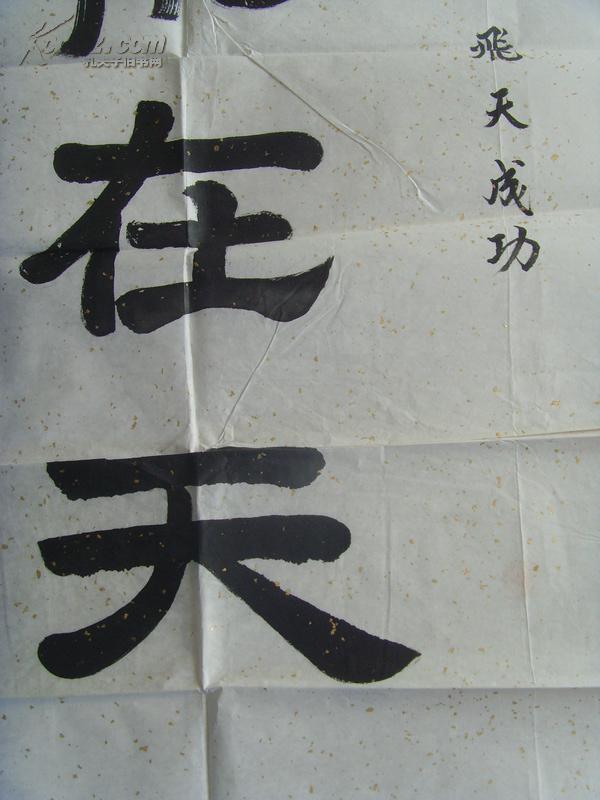 飛天成功
在天
孔夫子旧书网